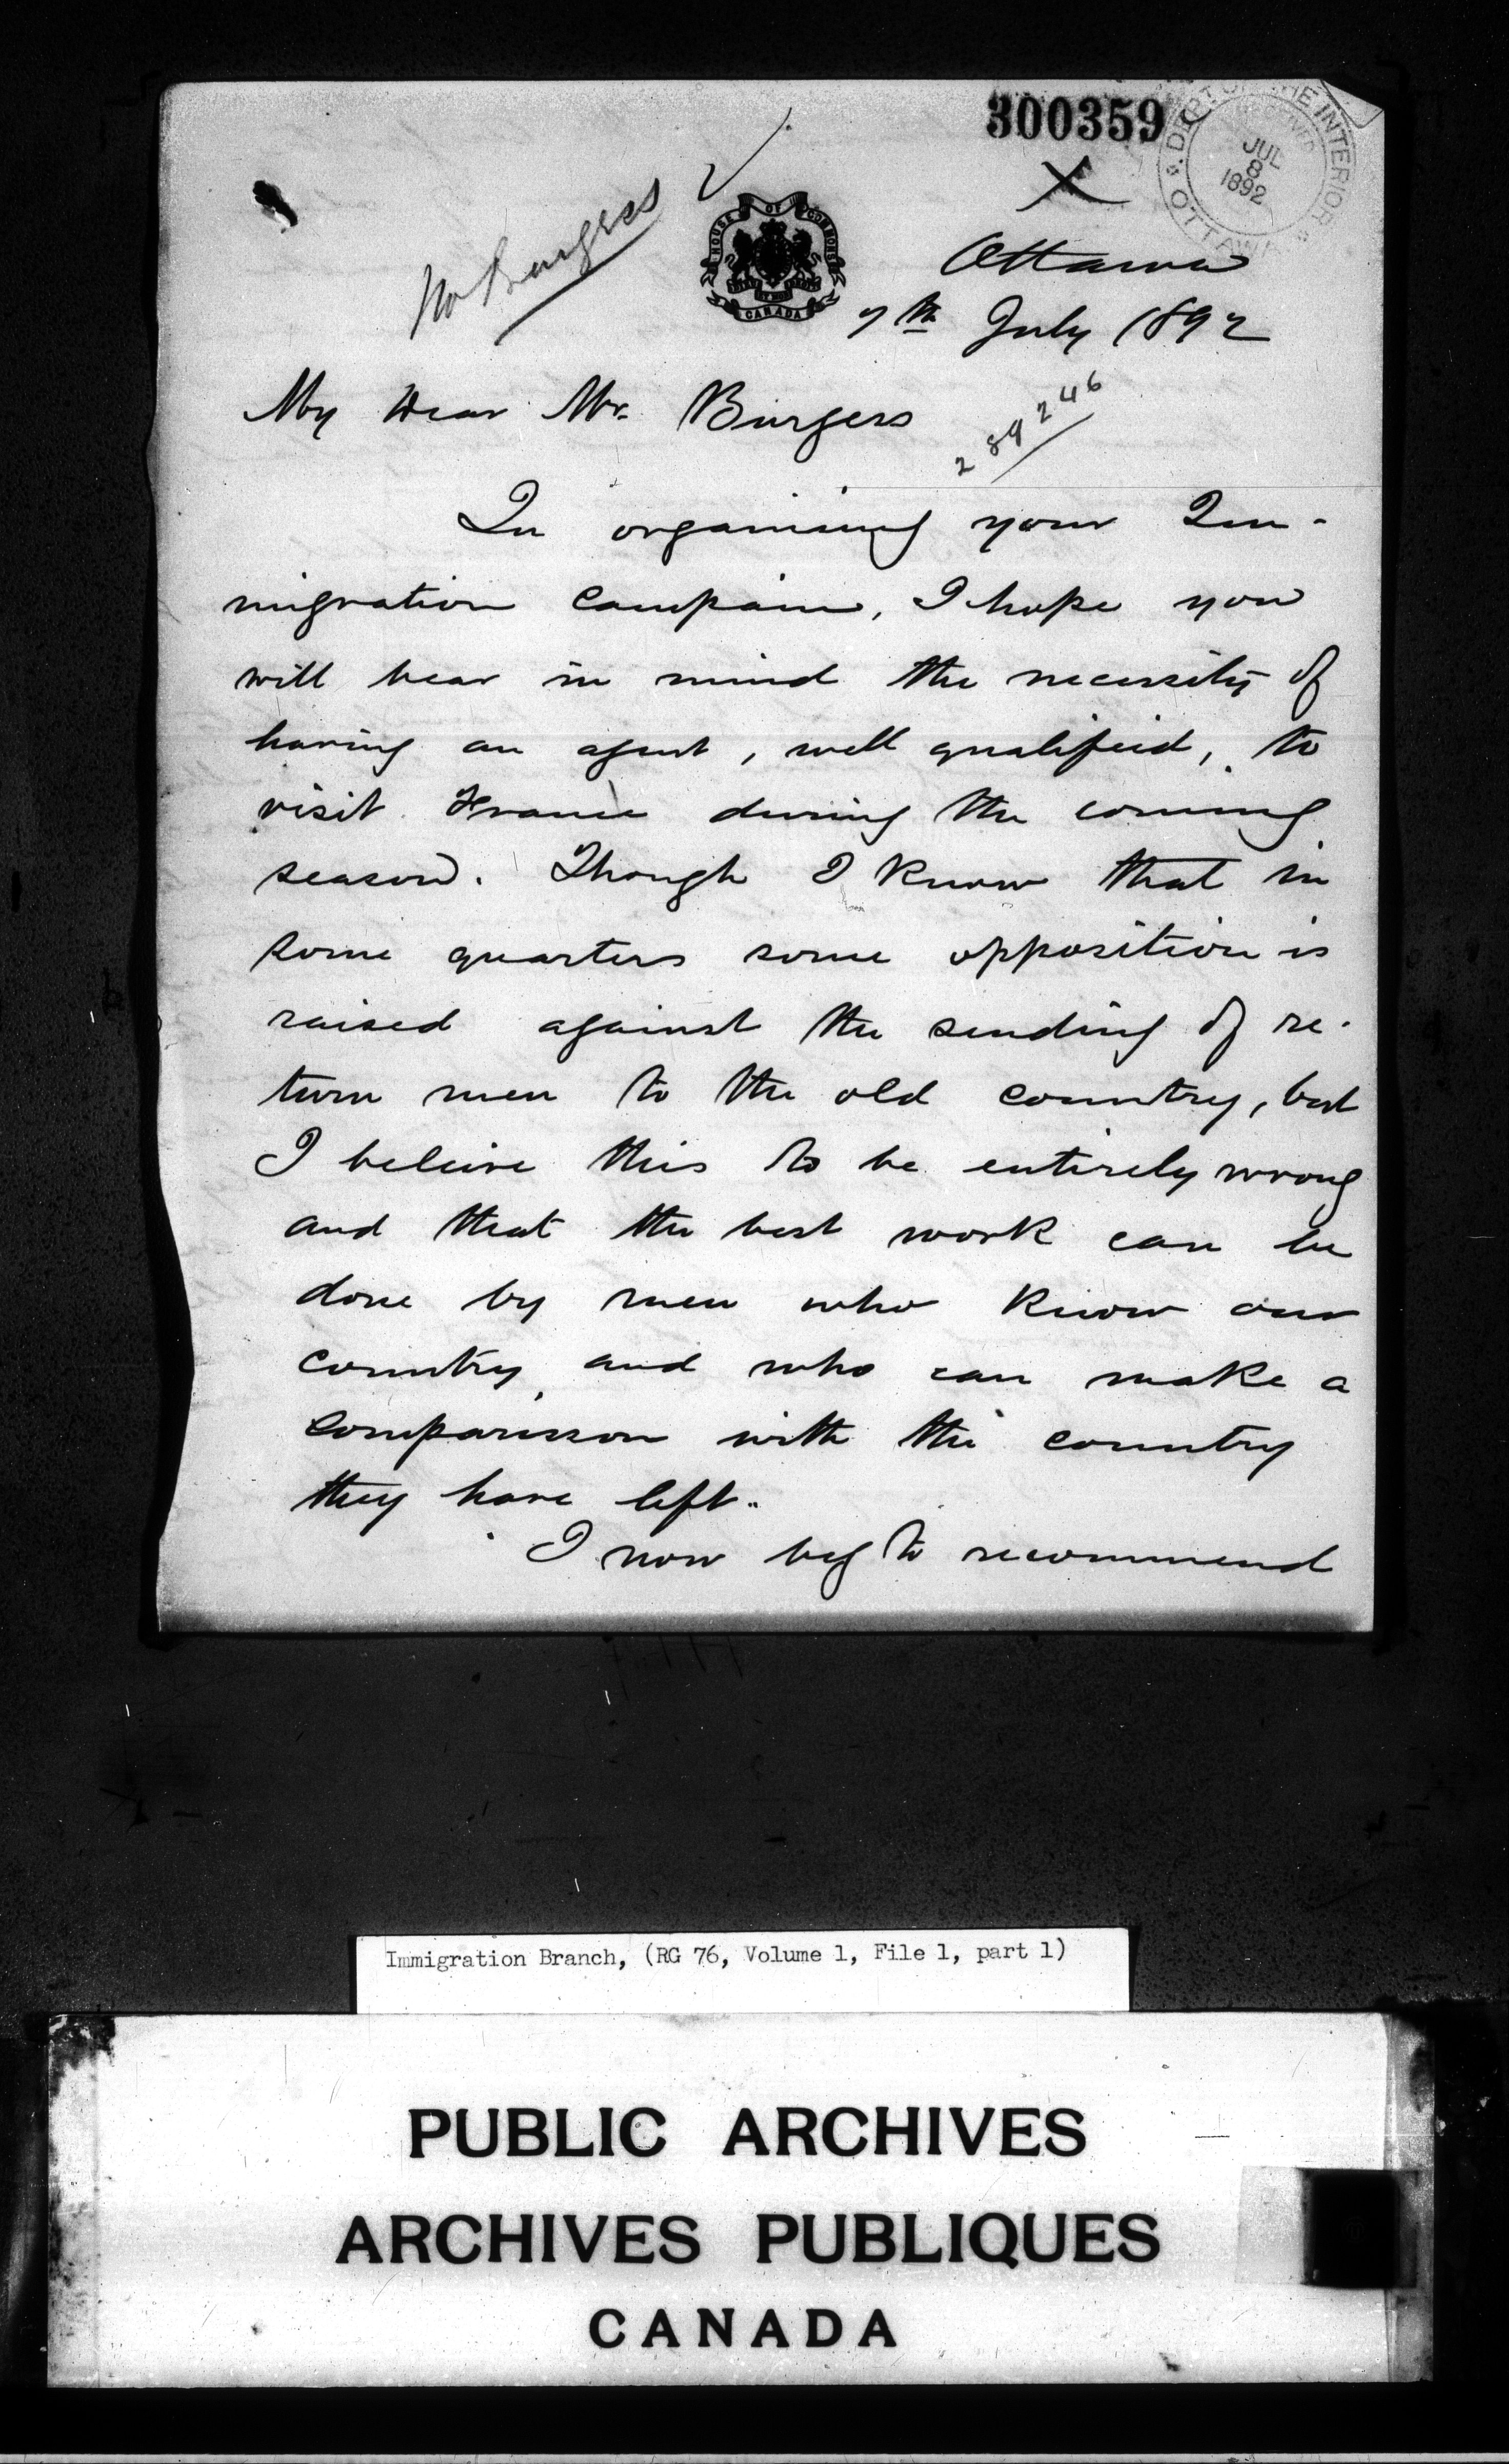 300359
DEPT OF THE INTERIOR
RECEIVED
JUL
8
1892
OTTAWA
Mr Burgess
HOUSE OF COMMONS
CANADA
Ottawa
7th July 1892
My Dear Mr. Burgess
289246
In organising your Im-
migration campain, I hope you
will bear in mind the necessity of
having an agent, well qualifeid, to
visit France during the coming
season. Though I know that in
some quarters some opposition is
raised against the sending of re-
turn men to the old country, but
I beleive this to be entirely wrong
and that the best work can be
done by men who know our
country, and who can make a
comparisson with the country
they have left.
I now beg to recommend
Immigration Branch, (RG 76, Volume 1, File 1, part 1)
PUBLIC ARCHIVES
ARCHIVES PUBLIQUES
CANADA